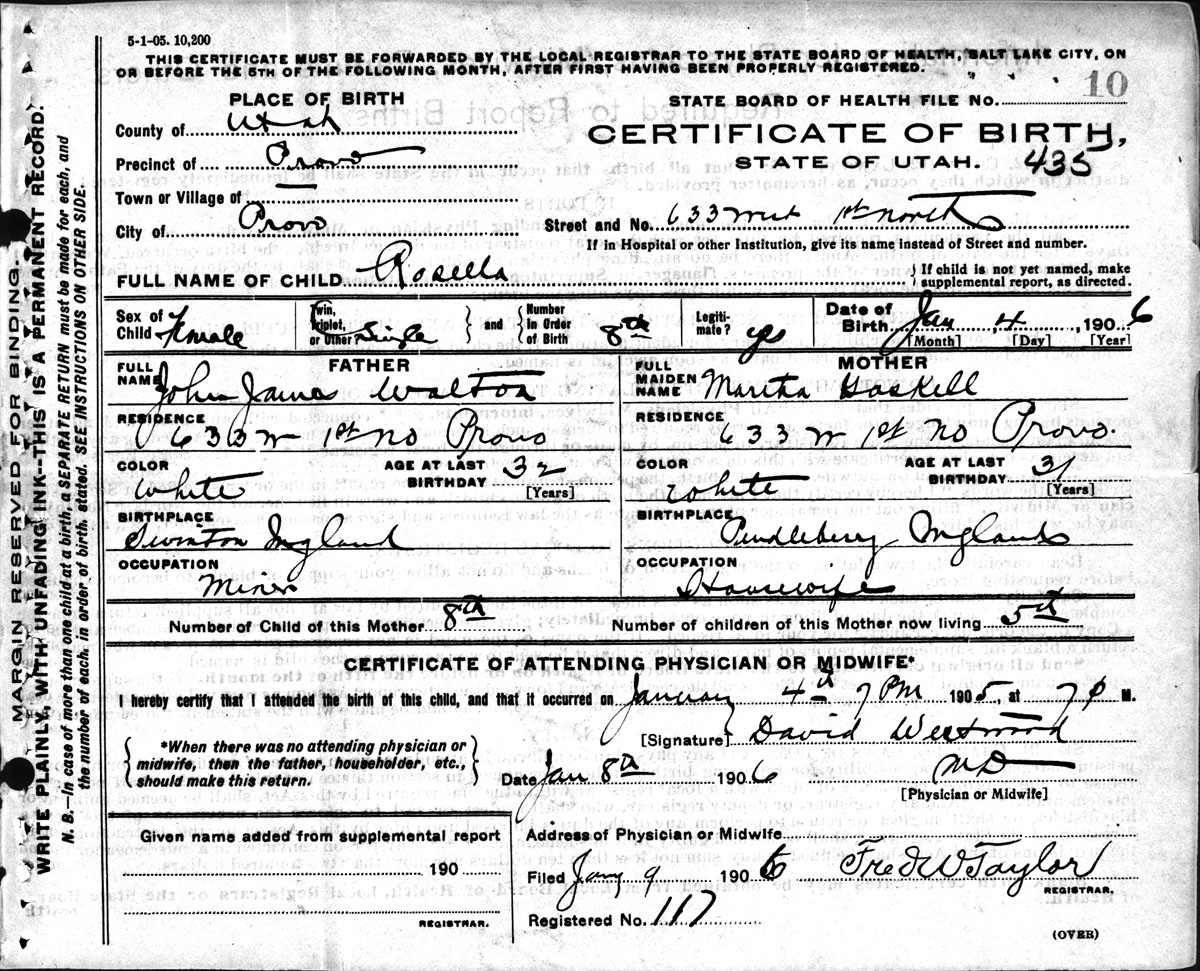 5-1-05. 10,200
THIS CERTIFICATE MUST BE FORWARDED BY THE LOCAL REGISTRAR TO THE STATE BOARD OF HEALTH, SALT LAKE CITY, ON
OR BEFORE THE 5TH OF THE FOLLOWING MONTH, AFTER FIRST HAVING BEEN PROPERLY REGISTERED.
PLACE OF BIRTH
STATE BOARD OF HEALTH FILE NO. 10
County of Utah
CERTIFICATE OF BIRTH,
Precinct of Provo
STATE OF UTAH. 435
Town or Village of
City of Provo
Street and No. 633 West 1st North
If in Hospital or other Institution, give its name instead of Street and number.
FULL NAME OF CHILD Rosella
{ If child is not yet named, make
supplemental report, as directed.
Sex of Child Female
Twin, Triplet, or Other Single } and { Number In Order of Birth 8th
Legiti-mate? yes
Date of Birth Jan 4, 1906
[Month] [Day] [Year]
FATHER
FULL NAME John James Walton
MOTHER
FULL MAIDEN NAME Martha Gaskell
RESIDENCE
633 W 1st No Provo
RESIDENCE
633 W 1st No Provo.
COLOR White
AGE AT LAST BIRTHDAY 32 [Years]
COLOR White
AGE AT LAST BIRTHDAY 31 [Years]
BIRTHPLACE
Swinton Ingland
BIRTHPLACE
Pendlebery Ingland
OCCUPATION
Miner
OCCUPATION
Housewife
Number of Child of this Mother 8th
Number of children of this Mother now living 5th
CERTIFICATE OF ATTENDING PHYSICIAN OR MIDWIFE*
I hereby certify that I attended the birth of this child, and that it occurred on January 4th 7 PM 1905, at 7 P M.
{ *When there was no attending physician or
midwife, then the father, householder, etc.,
should make this return. }
[Signature] David Westwood
Date Jan 8th 1906 MD
[Physician or Midwife]
Given name added from supplemental report
190
REGISTRAR.
Address of Physician or Midwife
Filed Jany 9 1906 Fred W Taylor
REGISTRAR.
Registered No. 117
(OVER)
MARGIN RESERVED FOR BINDING.
WRITE PLAINLY, WITH UNFADING INK--THIS IS A PERMANENT RECORD.
N. B.--In case of more than one child at a birth, a SEPARATE RETURN must be made for each, and
the number of each, in order of birth, stated. SEE INSTRUCTIONS ON OTHER SIDE.